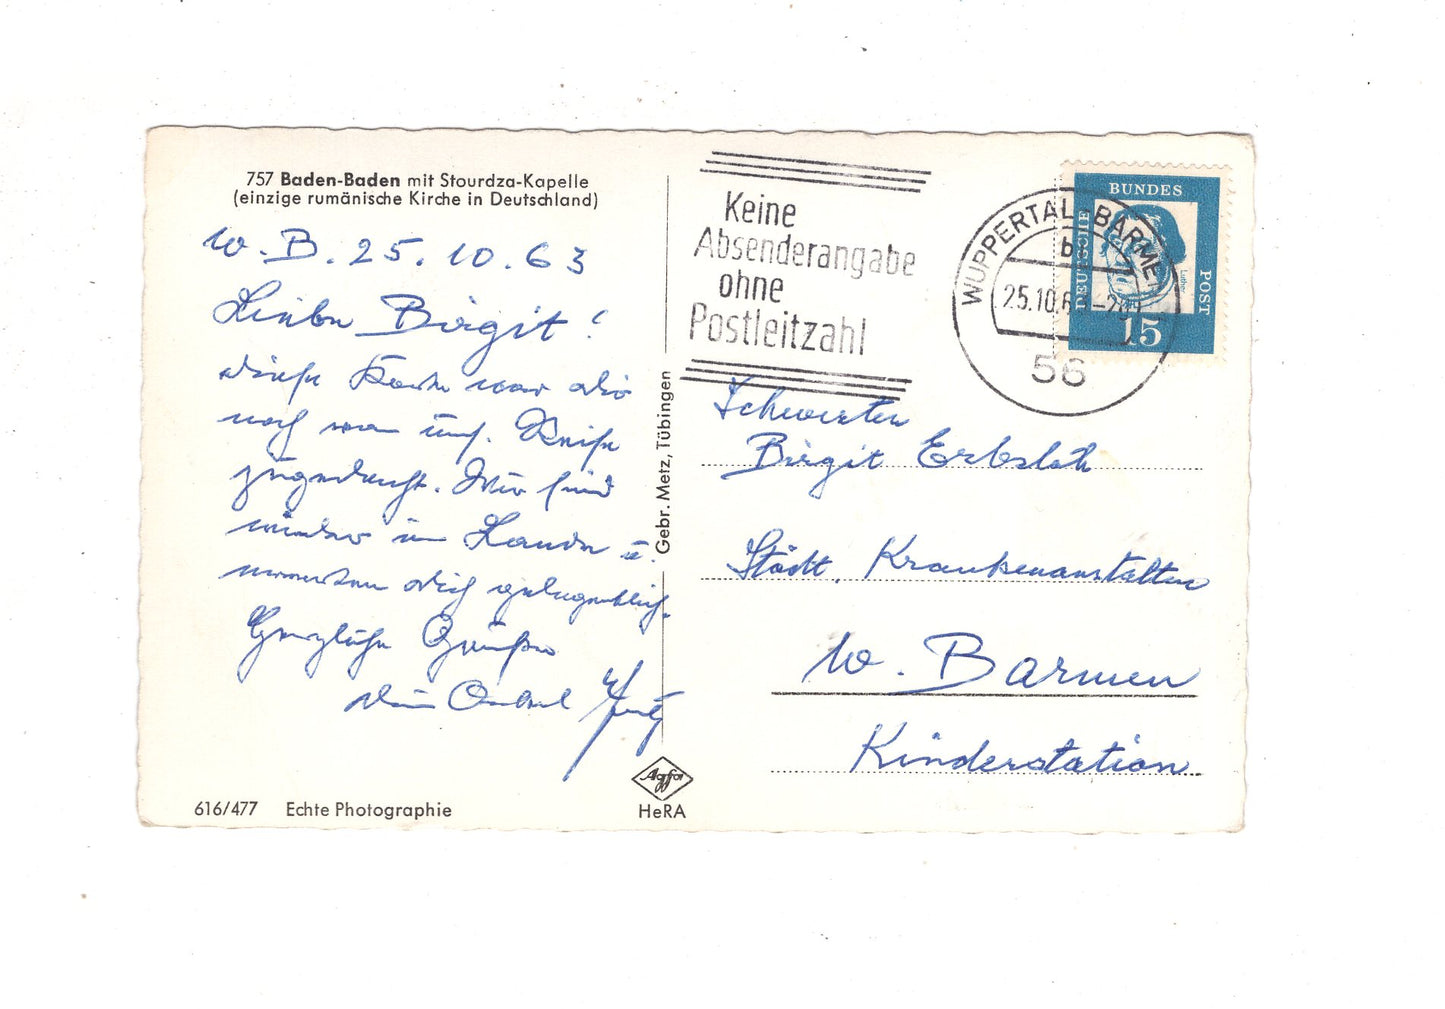 757 Baden-Baden mit Stourdza-Kapelle
(einzige rumänische Kirche in Deutschland)
W.-B. 25. 10. 63
Liebe Birgit!
diese Karte war dir
noch von uns. Reise
zugedacht. Wir sind
wieder im Lande u.
erwarten dich gelegentlich.
Herzliche Grüße
dein Onkel
616/477 Echte Photographie
Gebr. Metz, Tübingen
Agfa
HeRA
Keine
Absenderangabe
ohne
Postleitzahl
WUPPERTAL-BARMEN
b
25.10.63
56
DEUTSCHE BUNDES POST
Luther
15
Schwester
Birgit Erbslöh
Städt. Krankenanstalten
W. Barmen
Kinderstation